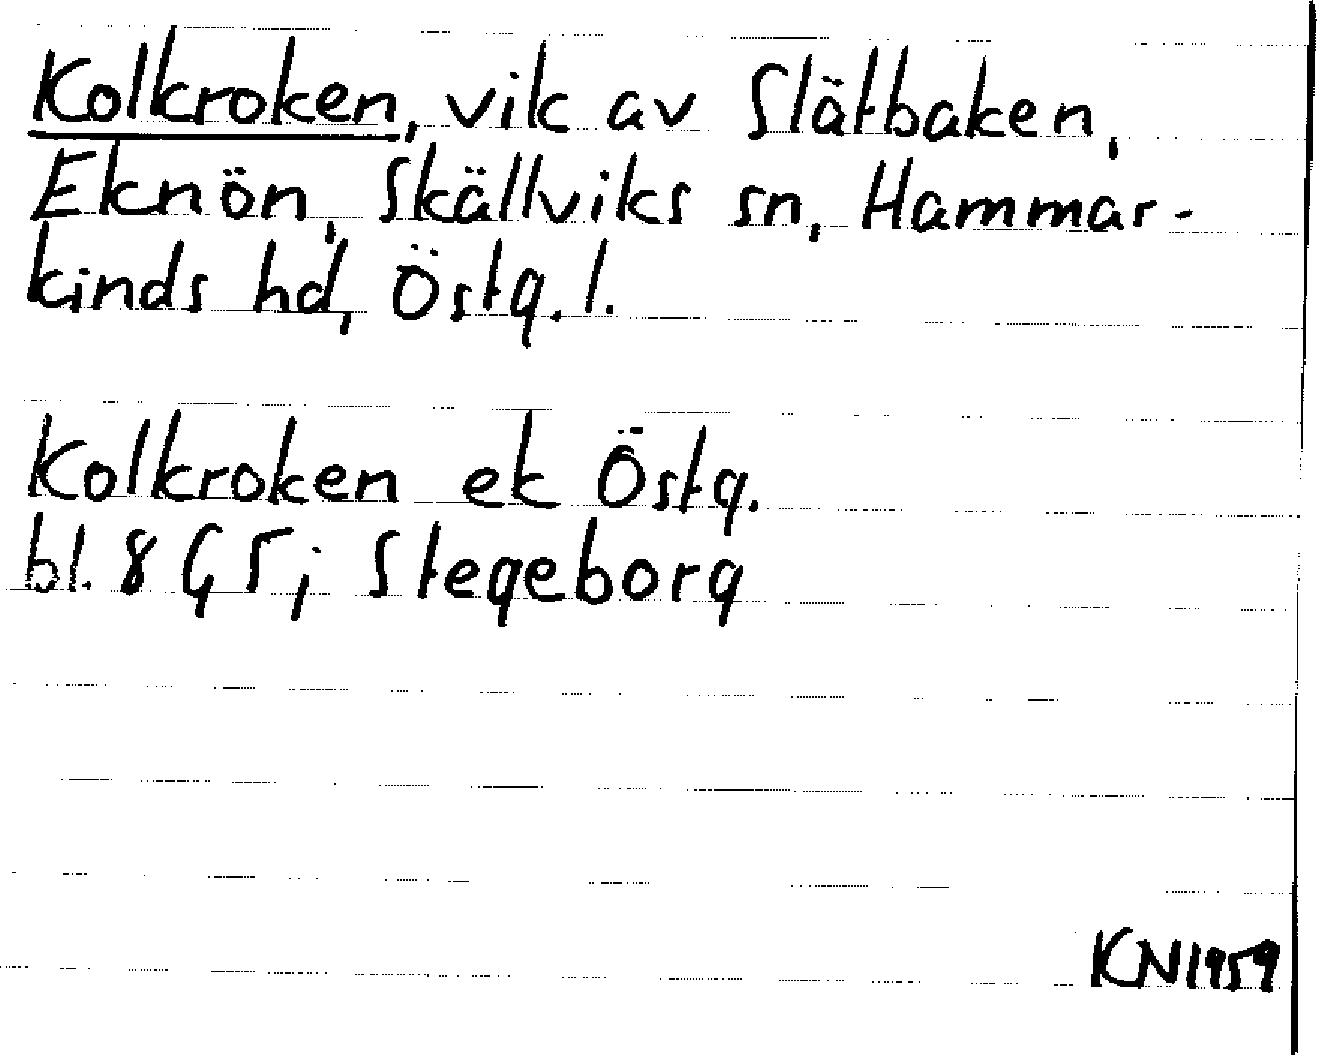 Kolkroken, vik av Slätbaken,
Eknön, Skällviks sn, Hammar-
kinds hd, Östg. l.
Kolkroken ek Östg.
bl. 8 G 5 j Stegeborg
KN 1959